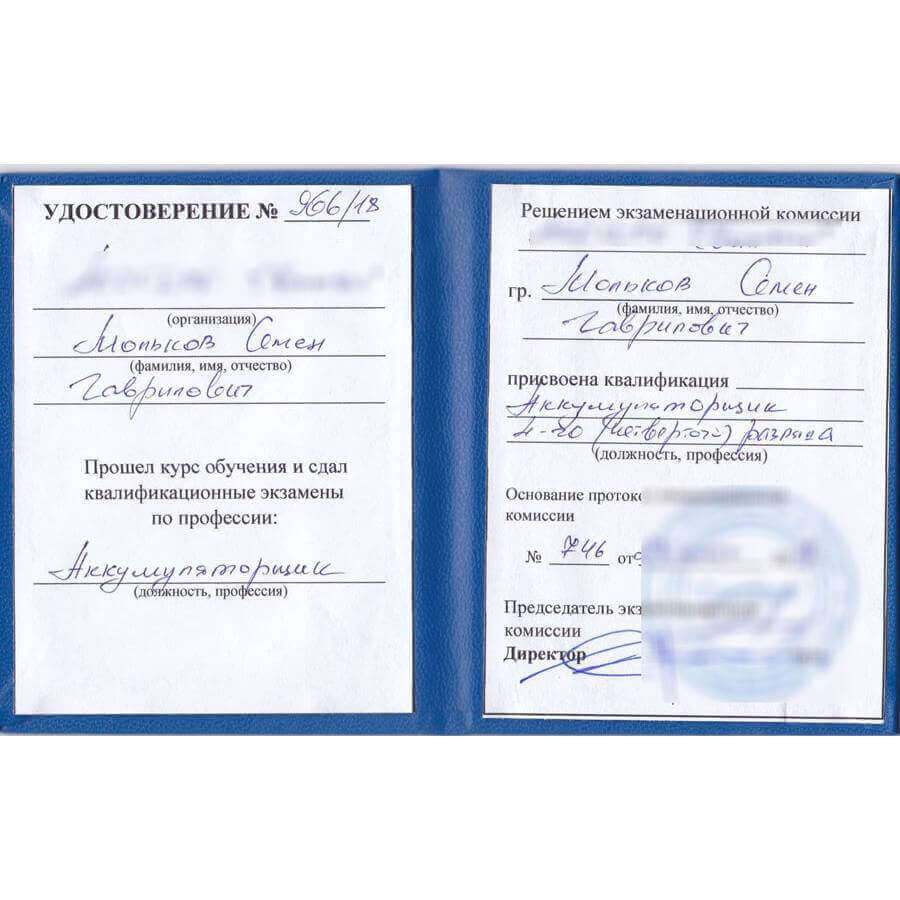 УДОСТОВЕРЕНИЕ № 966/18
(организация)
Мольков Семен
(фамилия, имя, отчество)
Гаврилович
Прошел курс обучения и сдал
квалификационные экзамены
по профессии:
Аккумуляторщик
(должность, профессия)
Решением экзаменационной комиссии
гр. Мольков Семен
(фамилия, имя, отчество)
Гаврилович
присвоена квалификация
Аккумуляторщик
4-го (четвертого) разряда
(должность, профессия)
Основание
комиссии
№ 746 от
Председатель
комиссии
Директор